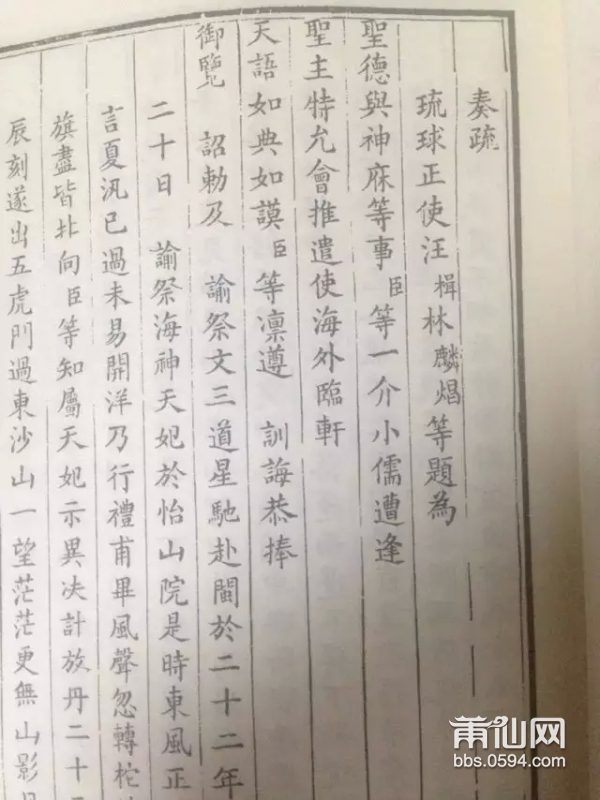 奏疏
琉球正使汪楫林麟焻等題為
聖德與神庥等事臣等一介小儒遭逢
聖主特允會推遣使海外臨軒
天語如典如謨臣等凛遵 訓誨恭捧
御覽 詔勅及 諭祭文三道星馳赴閩於二十二年
二十日 諭祭海神天妃於怡山院是時東風正
言夏汛已過未易開洋乃行禮甫畢風聲忽轉柁
旗盡皆北向臣等知屬天妃示異决計放丹二十
辰刻遂出五虎門過東沙山一望茫茫更無山影
莆仙网
bbs.0594.com